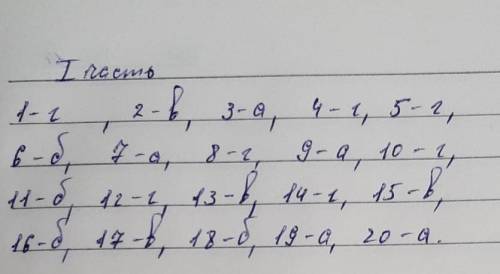 I часть
1-г, 2-в, 3-а, 4-г, 5-г,
6-б, 7-а, 8-г, 9-а, 10-г,
11-б, 12-г, 13-в, 14-г, 15-в,
16-б, 17-в, 18-б, 19-а, 20-а.